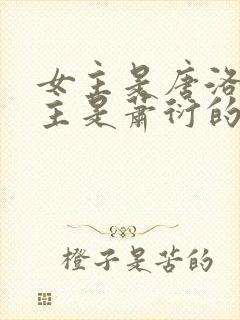 女主是唐洛
主是萧衍的
橙子是苦的